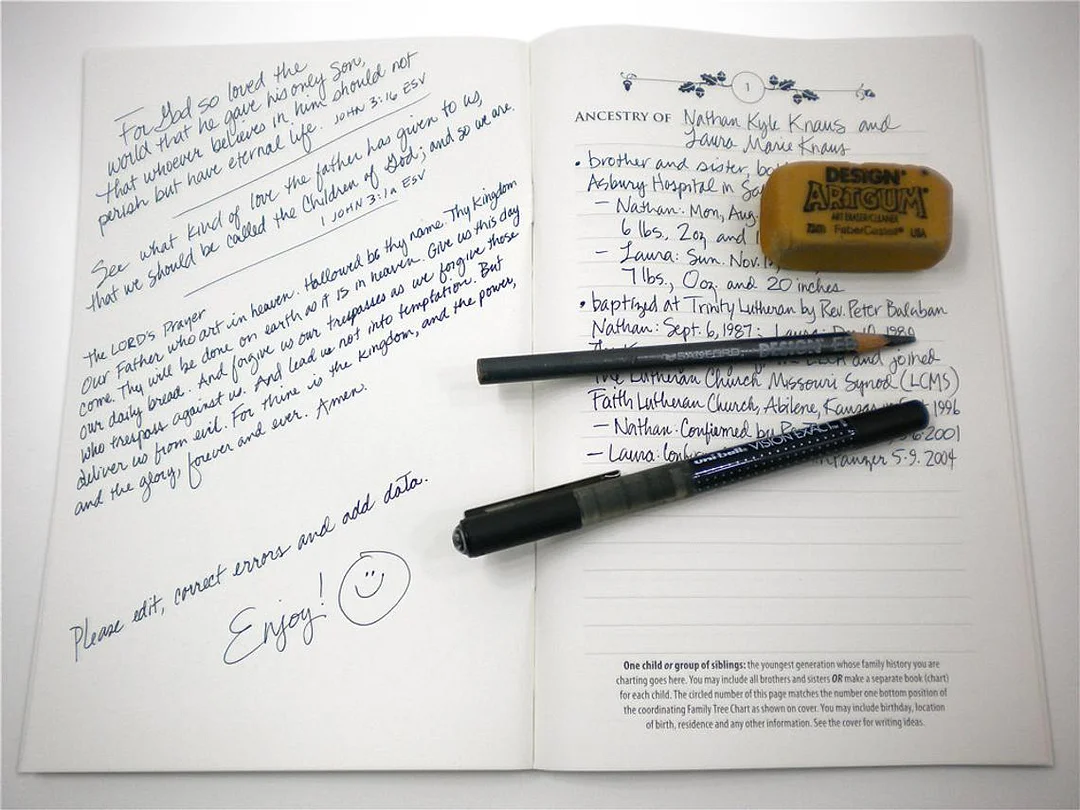 For God so loved the
world that he gave his only Son,
that whoever believes in him should not
perish but have eternal life. JOHN 3:16 ESV
See what kind of love the father has given to us,
that we should be called the Children of God; and so we are.
1 JOHN 3:1a ESV
The LORD'S Prayer
Our Father who art in heaven. Hallowed be thy name. Thy Kingdom
come. Thy will be done on earth as it is in heaven. Give us this day
our daily bread. And forgive us our trespasses as we forgive those
who trespass against us. And lead us not into temptation. But
deliver us from evil. For thine is the Kingdom, and the power,
and the glory, forever and ever. Amen.
Please edit, correct errors and add data.
Enjoy!
1
ANCESTRY OF Nathan Kyle Knaus and
Laura Marie Knaus
• brother and sister,
Asbury Hospital in
– Nathan: Mon, Aug.
6 lbs, 2oz and
– Laura: Sun. Nov.
7 lbs., 0oz. and 20 inches
• baptized at Trinity Lutheran by Rev. Peter Balaban
Nathan: Sept. 6, 1987; Laura:
and joined
The Lutheran Church Missouri Synod (LCMS)
Faith Lutheran Church, Abilene, Kansas 1996
– Nathan: Confirmed by 2001
– Laura: 5-9-2004
DESIGN
ARTGUM
ART ERASER/CLEANER
FaberCastell USA
SANFORD DESIGN
uni-ball VISION EXACT
One child or group of siblings: the youngest generation whose family history you are
charting goes here. You may include all brothers and sisters OR make a separate book (chart)
for each child. The circled number of this page matches the number one bottom position of
the coordinating Family Tree Chart as shown on cover. You may include birthday, location
of birth, residence and any other information. See the cover for writing ideas.